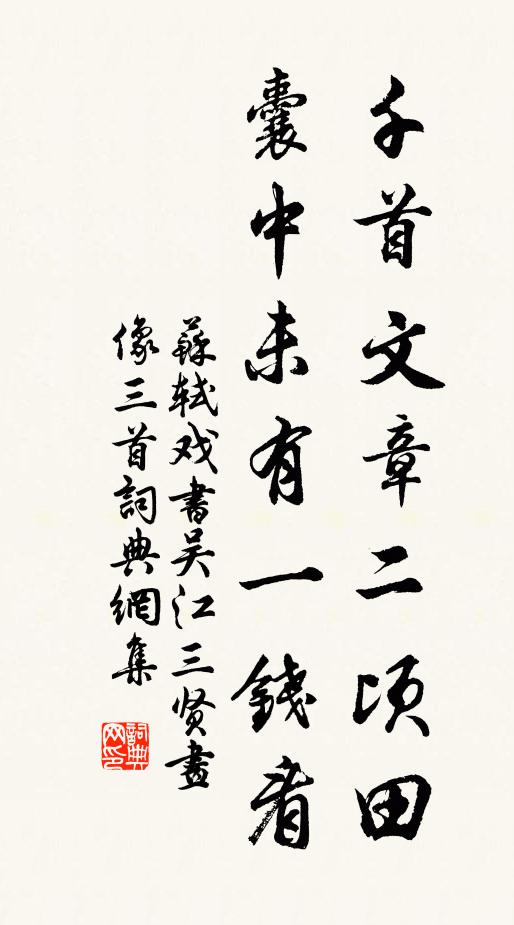 千首文章二顷田
囊中未有一錢看
蘇軾戏書吴江三贤畫
像三首詞典網集
詞典
网印